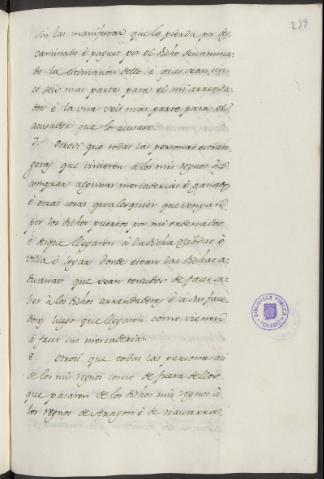 239
sin las manifestar que lo pierda por des
caminado é pague por el dicho descamina
do la estimacion dello é que sean
seis mas partes para el mi arrenda
dor é la una seis mas parte para el
acusador que lo acusare.
7. Otrosi que todas las personas estran
geras que vinieren á los mis reynos á
comprar algunas mercaderias é ganados
é otras cosas qualesquier que vengan
por los dichos puertos por mi ordenados
é desque llegaren á la dicha cibdad é
villa é lugar donde estan las dichas a
duanas que sean tenudos de facer sa
ber á los dichos arrendadores é á su face
dor luego que llegaren como vienen
á facer sus mercaderias.
8. Otrosi que todas las personas asi
de los mis reynos como de fuera dellos
que pasaren de los dichos mis reynos á
los reynos de Aragon é de navarra
BIBLIOTECA PUBLICA
TOLEDO